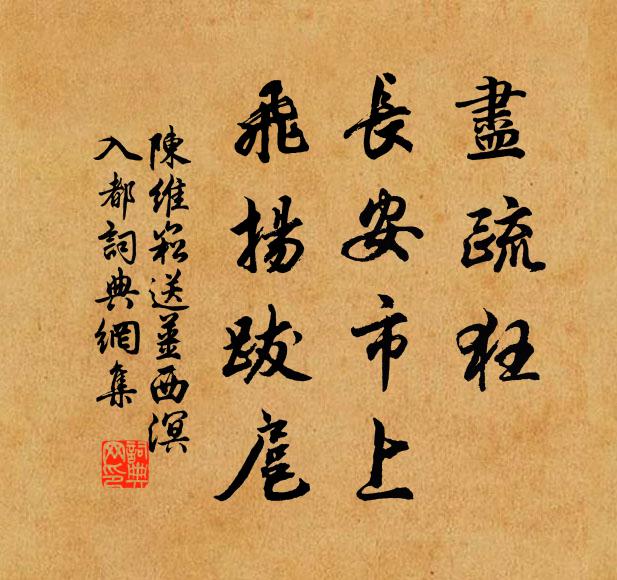 盡疏狂
長安市上
飛揚跋扈
陳維崧送薑西溟
入都詞典網集
詞典
网印